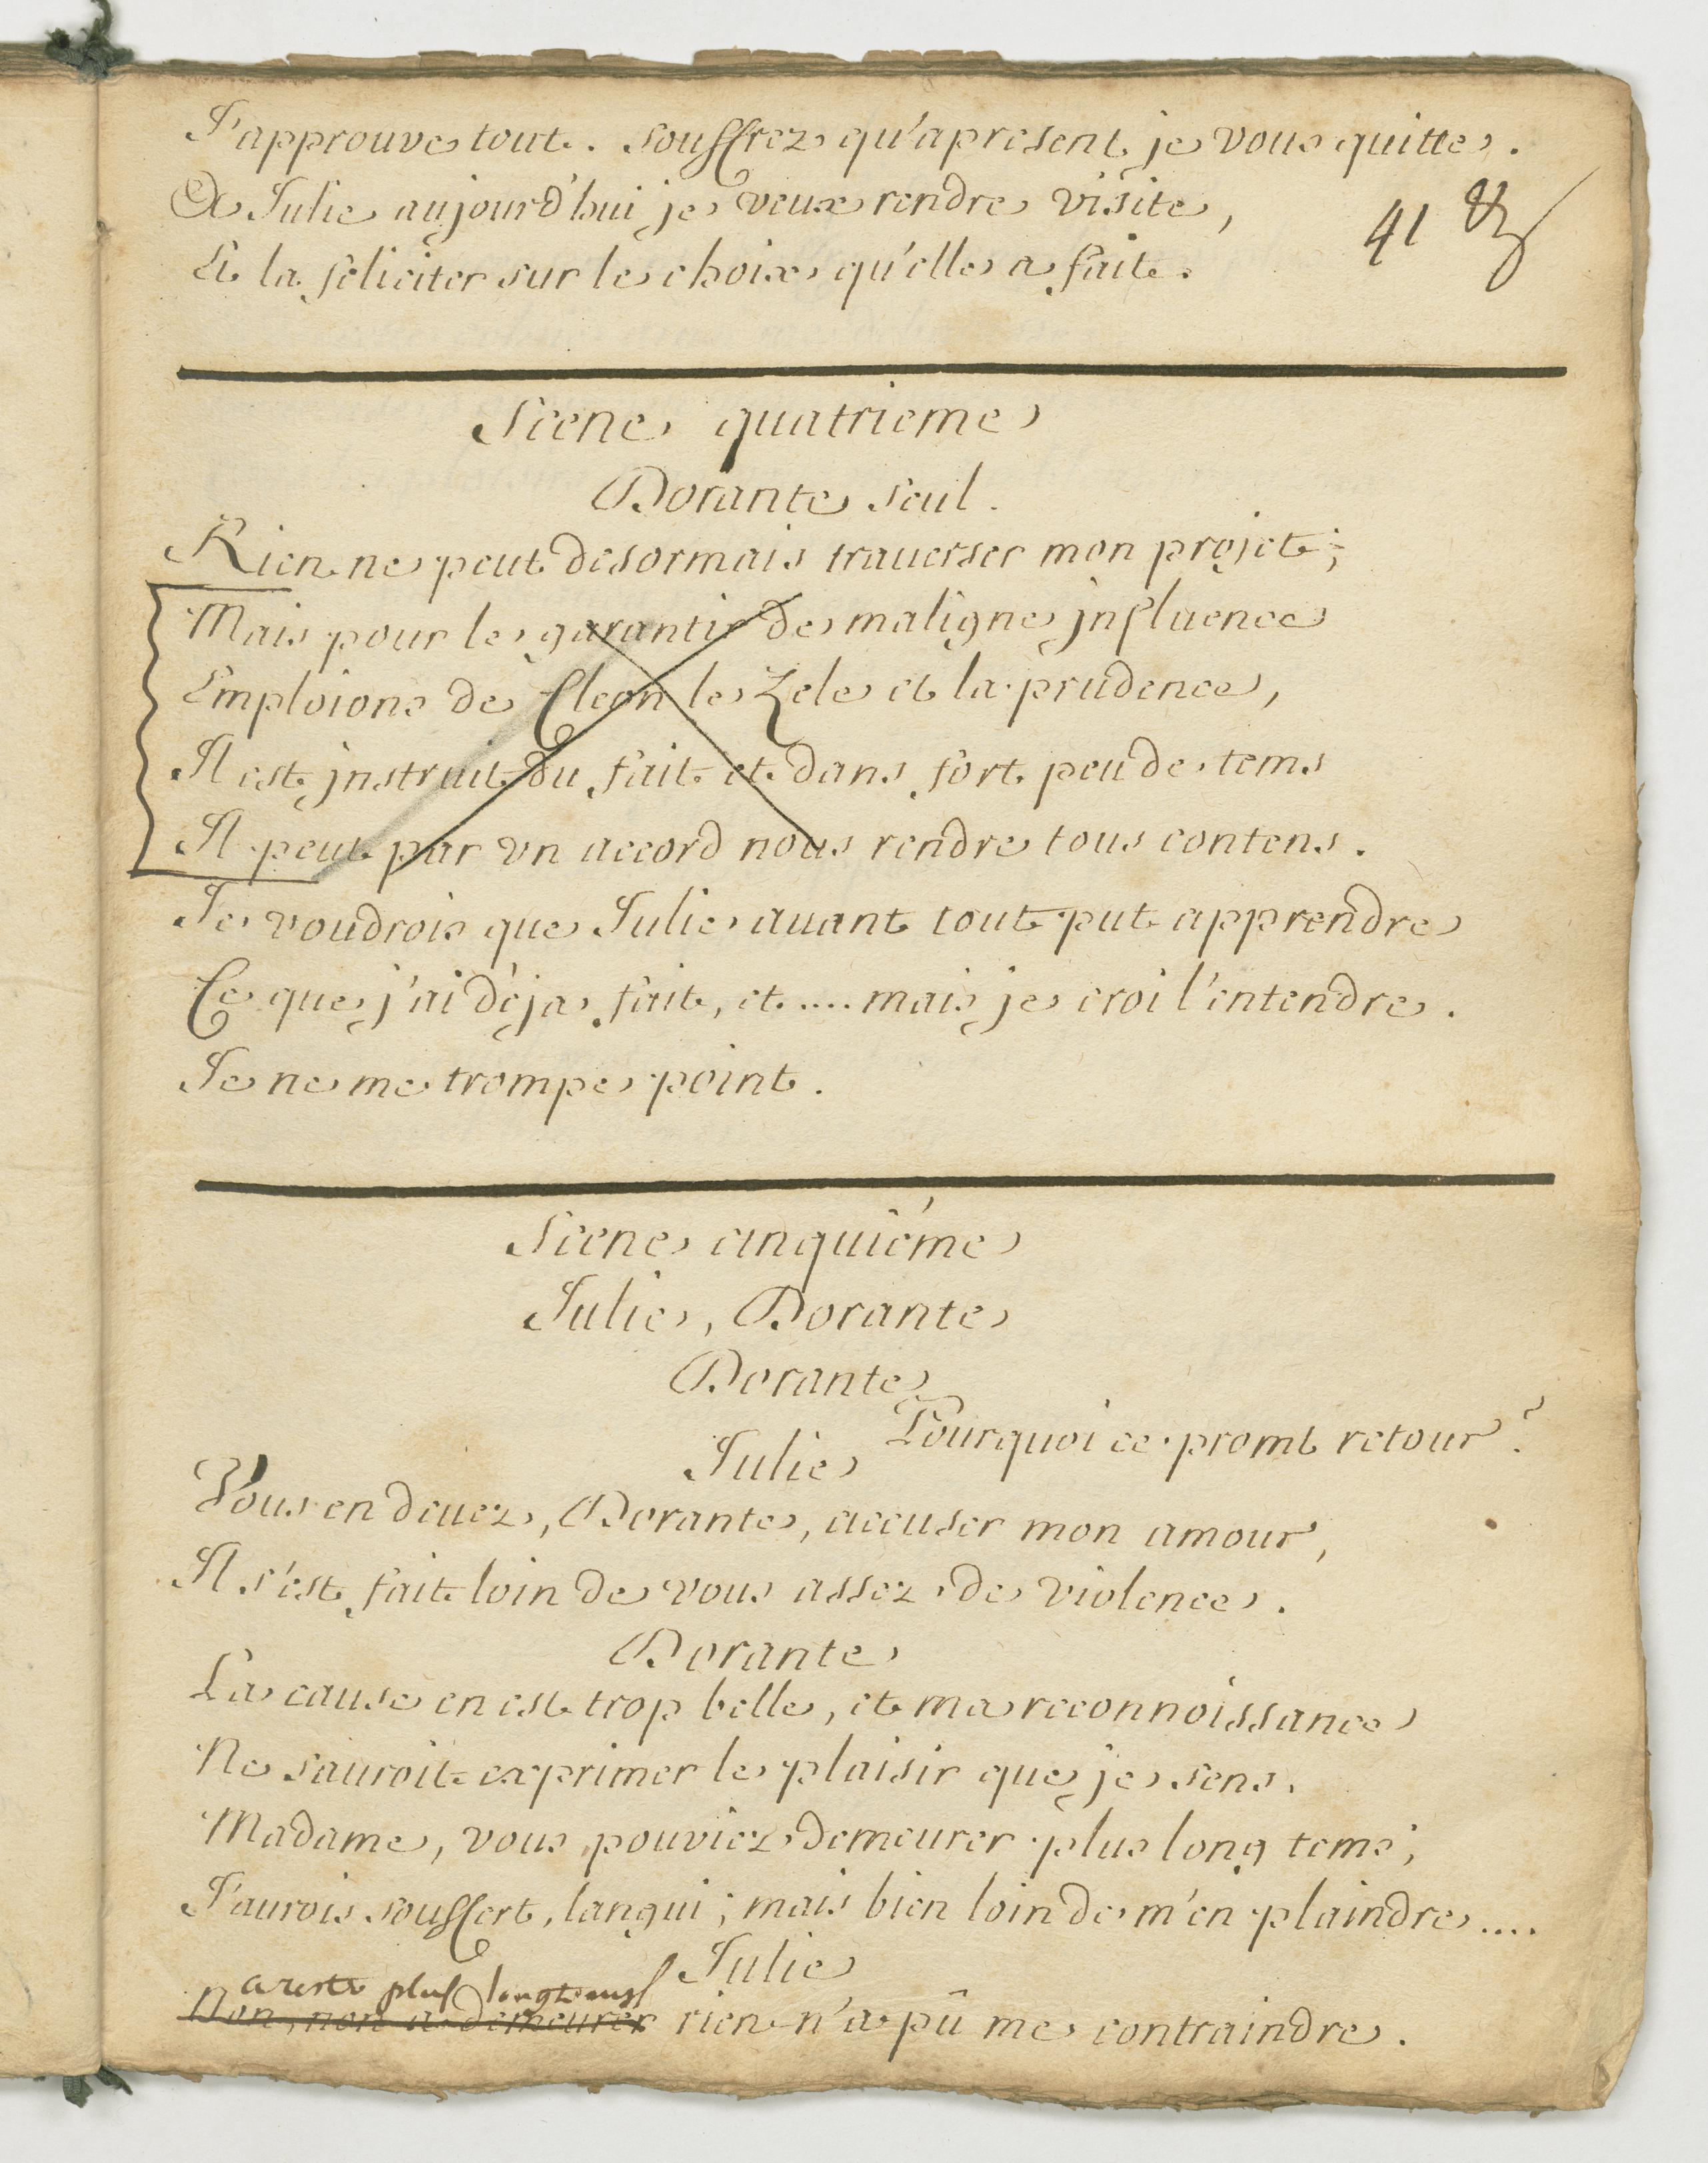 J'approuve tout. souffrez qu'apresent je vous quitte.
A Julie aujourd'hui je veux rendre visite,
41
Et la féliciter sur le choix qu'elle a fait.
Scene quatrieme
Dorante seul.
Rien ne peut desormais trauerser mon projet;
Mais pour le garantir de maligne jnfluence
Emploions de Cleon le Zele et la prudence,
Il est jnstruit du fait et dans fort peu de tems
Il peut par vn accord nous rendre tous contens.
Je voudrois que Julie auant tout put apprendre
Ce que j'ai déja fait, et .... mais je croi l'entendre.
Je ne me trompe point.
Scene cinquiéme
Julie, Dorante
Dorante
Pourquoi ce promt retour?
Julie
Vous en deuez, Dorante, accuser mon amour,
Il s'est fait loin de vous assez de violence.
Dorante
La cause en est trop belle, et ma reconnoissance
Ne sauroit exprimer le plaisir que je sens.
Madame, vous pouviez demeurer plus long tems;
J'aurois souffert, langui; mais bien loin de m'en plaindre ....
Julie
a rester plus longtemps
Non, non a demeurer rien n'a pû me contraindre.